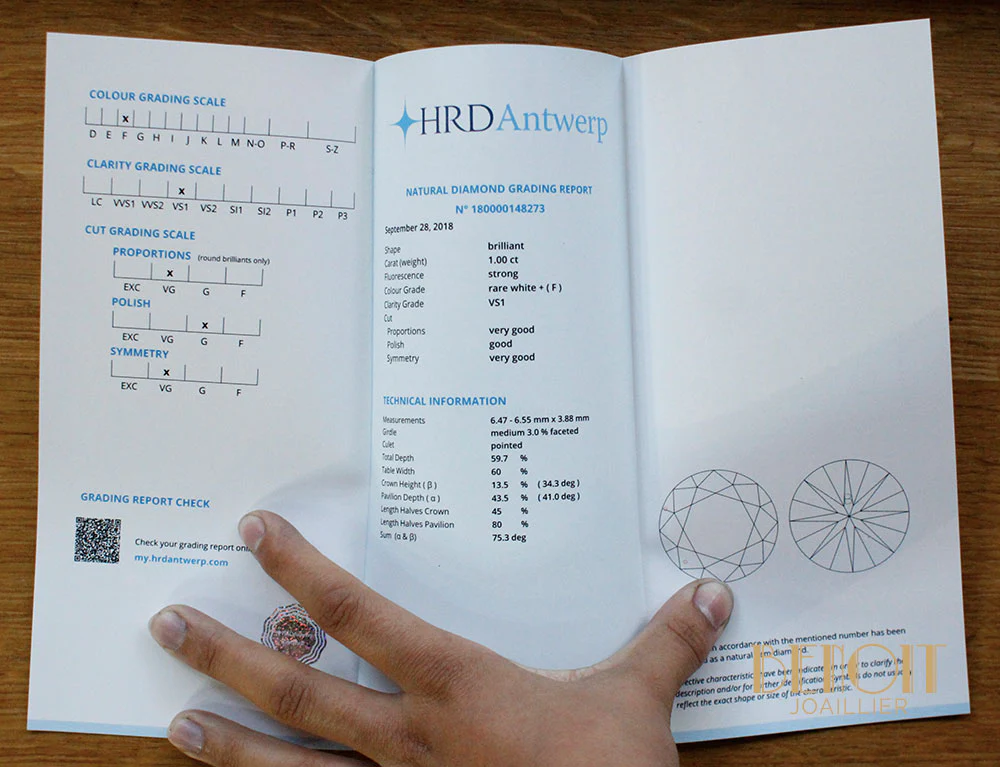 COLOUR GRADING SCALE
x
D E F G H I J K L M N-O P-R S-Z
CLARITY GRADING SCALE
x
LC VVS1 VVS2 VS1 VS2 SI1 SI2 P1 P2 P3
CUT GRADING SCALE
PROPORTIONS (round brilliants only)
x
EXC VG G F
POLISH
x
EXC VG G F
SYMMETRY
x
EXC VG G F
GRADING REPORT CHECK
Check your grading report
my.hrdantwerp.com
HRDAntwerp
NATURAL DIAMOND GRADING REPORT
N° 180000148273
September 28, 2018
Shape brilliant
Carat (weight) 1.00 ct
Fluorescence strong
Colour Grade rare white + ( F )
Clarity Grade VS1
Cut
Proportions very good
Polish good
Symmetry very good
TECHNICAL INFORMATION
Measurements 6.47 - 6.55 mm x 3.88 mm
Girdle medium 3.0 % faceted
Culet pointed
Total Depth 59.7 %
Table Width 60 %
Crown Height ( β ) 13.5 % ( 34.3 deg )
Pavilion Depth ( α ) 43.5 % ( 41.0 deg )
Length Halves Crown 45 %
Length Halves Pavilion 80 %
Sum (α & β) 75.3 deg
in accordance with the mentioned number has been
as a natural gem diamond.
have been indicated in order to clarify the
description and/or for further identification. Symbols do not usually
reflect the exact shape or size of the characteristic.
BENOIT
JOAILLIER